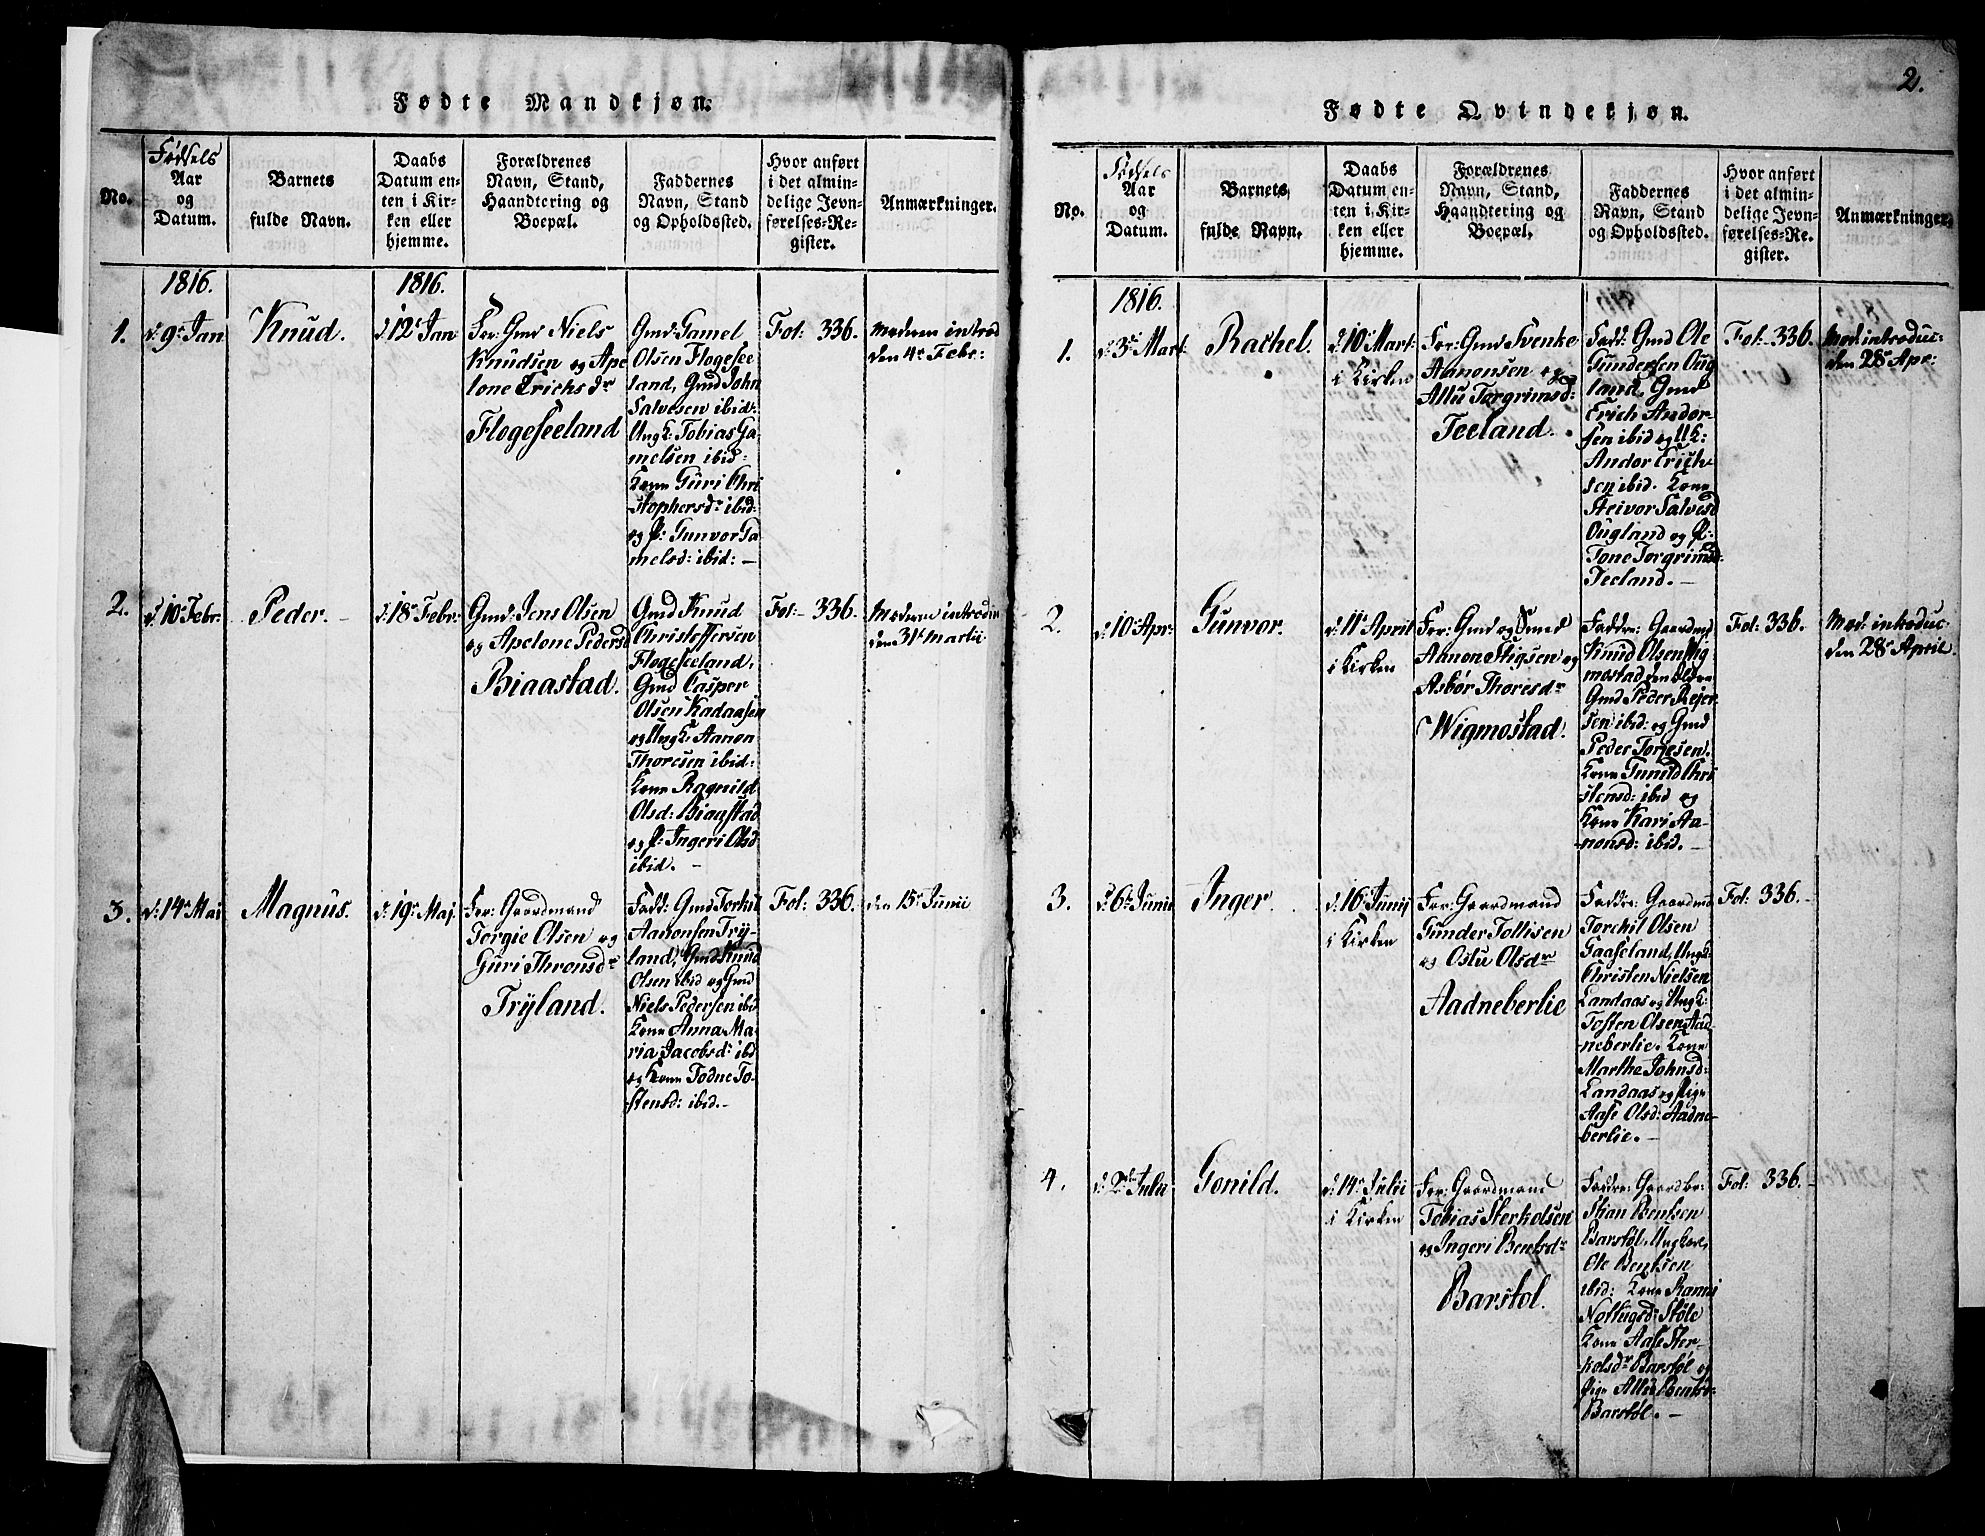 Fødte Mandkjøn.
No.
Fødsels
Aar
og
Datum.
Barnets
fulde Navn.
Daabs
Datum en-
ten i Kir-
ken eller
hjemme.
Forældrenes
Navn, Stand,
Haandtering og
Boepæl.
Faddernes
Navn, Stand
og Opholdssted.
Hvor anført
i det almin-
delige Jevn-
førelses-Re-
gister.
Anmærkninger.
1816.
1816.
1.
d: 9de Jan
Knud.
d 12te Jan
For: Gmd Niels
Knudsen og Ape
lone Erichsdr
Flogeseeland
Gmd: Gamel
Olsen Flogesee
land, Gmd John
Salvesen ibid:
Ungk: Tobias Ga-
melsen ibid:
Kone Guri Chri
stophersdr ibid:
og P: Gunvor Ga
melsd: ibid: —
Fol: 336.
Moderen introd
den 4de Febr:
2.
d: 10 Febr:
Peder.
d: 18de Febr:
Gmd: Jens Olsen
og Apelone Pedersd
Biaastad.
Gmd Knud
Christoffersen
Flogeseeland,
Gmd Casper
Olsen Kadaasen
og Ungk. Aanon
Thoresen ibid:
Kone Ragnild
Olsd: Biaastad
og P: Ingeri Olsd
ibid. —
Fol: 336.
Moderen introdu
den 31te Martii
3.
d: 14de Mai
Magnus.
d: 19de Maj.
For: Gaardmand
Torgie Olsen og
Guri Thronsdr
Tryland.
Fadd: Gmd Torkil
Aanonsen Try-
land, Gmd Knud
Olsen ibid og Gmd
Niels Pedersen ibid
Kone Anna Ma-
ria Jacobsd: ibd
og Kone Todne To-
stensd: ibid. —
Fol: 336.
den 15de Junii
2.
Fødte Qvindekjøn.
No.
Fødsels
Aar
og
Datum.
Barnets
fulde Navn.
Daabs
Datum en-
ten i Kir-
ken eller
hjemme.
Forældrenes
Navn, Stand,
Haandtering og
Boepæl.
Faddernes
Navn, Stand
og Opholdssted.
Hvor anført
i det almin-
delige Jevn-
førelses-Re-
gister.
Anmærkninger.
1816.
1.
d: 3de Mart:
Rachel.
d 10 Mart:
i Kirken
For: Gmd Svenke
Aanonsen og
Allu Torgrimsd:
Teeland.
Fadd: Gmd Ole
Gundersen Oug
land, Gmd
Erich Andor-
sen ibid og UK:
Andor Erich-
sen ibid. Kone
Steivor Salvesd
Ougland og P:
Tone Torgrimsd:
Teeland. —
Fol: 336.
Mod. introduc:
den 28de Apr:
2.
d: 10 Apr:
Gunvor.
d: 11te April
i Kirken
For: Gmd og Smed
Aanon Stigsen og
Asbor Thoresdr
Wigmostad.
Faddre: Gaardmd
Knud Olsen Wig
mostad den Eldre
Gmd Peder Rejer
sen ibid: og Gmd
Peder Torjesen.
Kone Gunild Chri
stensd: ibid og
Kone Kari Aa-
nonsd: ibid. —
Fol: 336.
Mod. introduc:
den 28de April.
3.
d: 6te Junii
Inger.
d: 16 Junij
i Kirken
For: Gaardmand
Gunder Tollisen
og Oslu Olsdr
Aadneberlie
Faddre: Gaardmd
Torchil Olsen
Gaaseland, Ungk
Christen Nielsen
Landaas og Ungk:
Tosten Olsen Aad
neberlie. Kone
Marthe Johnsd:
Landaas og Pige
Aase Olsd: Aadne-
berlie. —
Fol: 336. —
4.
d: 2den Julii
Gonild.
d: 14de Julii
i Kirken
For: Gaardmand
Tobias Sterkolsen
og Ingeri Bentsdr
Barstol.
Faddre: Gaardbr:
Stian Bentsen
Barstøl, Ungkarl,
Ole Bentsen
ibid: Kone Ranni
Nottugsd: Støle
Kone Aase Ster-
kolsdr Barstøl og
Pige Allu Bentsd:
Barstøl. —
Fol: 336. —